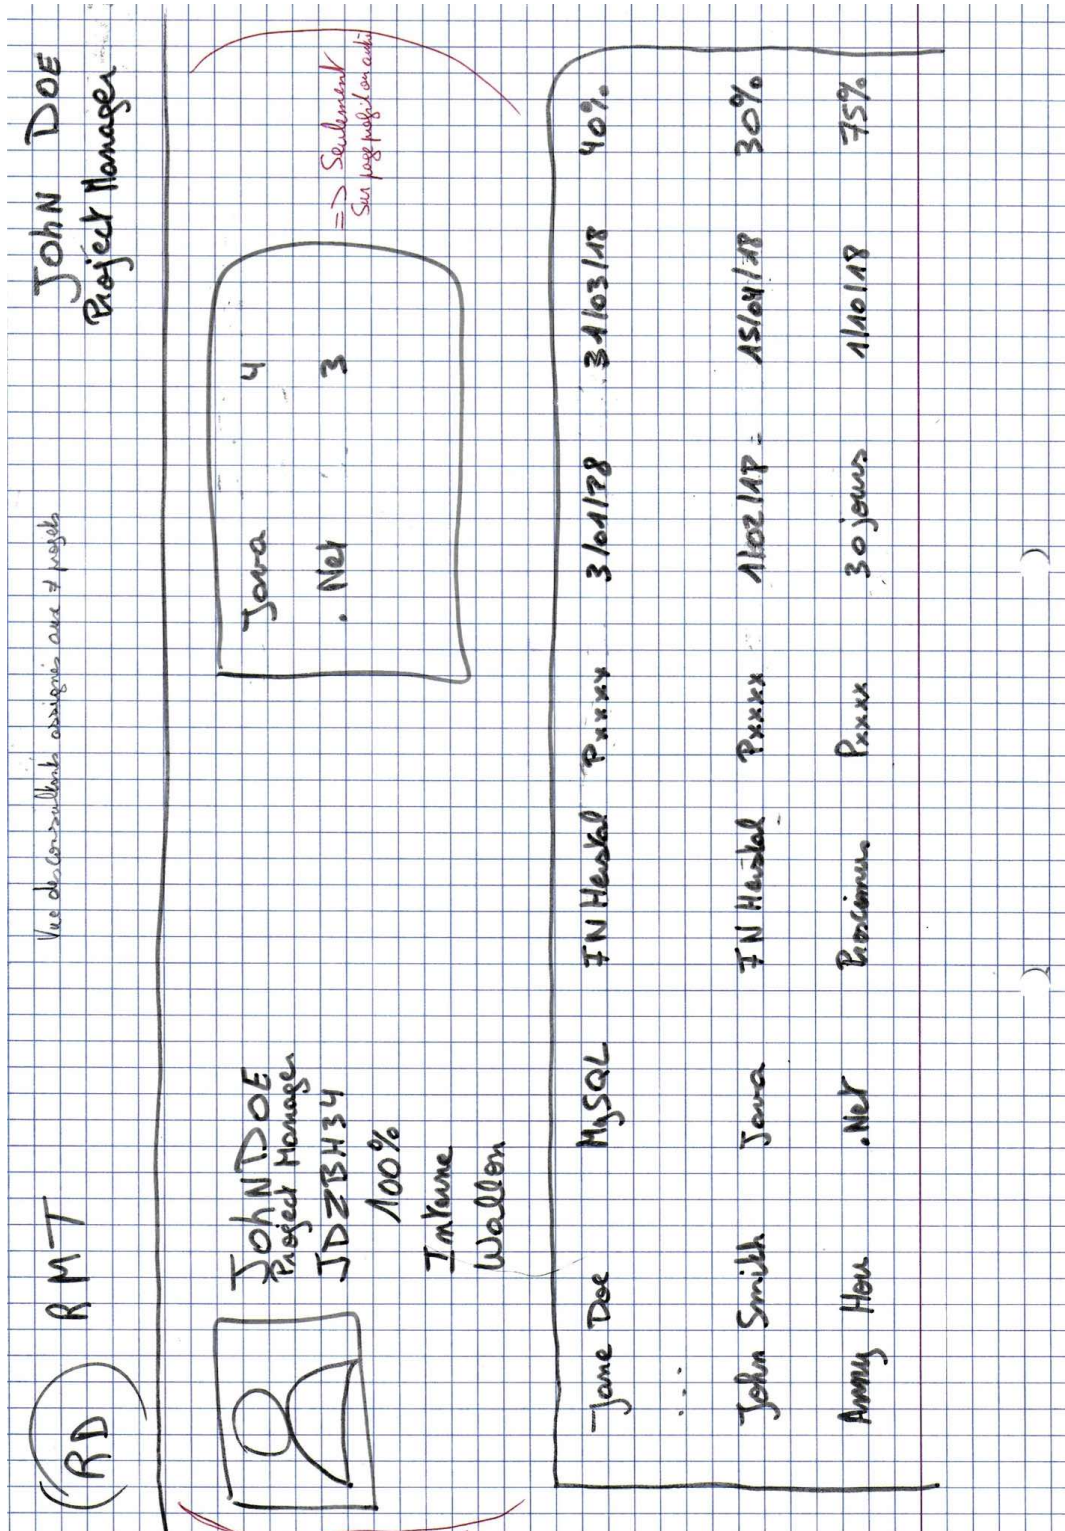 RD RMT
Vue des consultants assignés aux ≠ projets
JohN DOE
Project Manager
JohN DOE
Project Manager
JDZBH34
100%
Interne
Wallon
Java 4
. Net 3
=> Seulement
sur page profil
Jane Doe MySQL FN Herstal Pxxxxx 3/01/18 31/03/18 40%
...
John Smith Java FN Herstal Pxxxx 1/02/18 - 15/04/18 30%
Hou .Net Proximus Pxxxx 30 jours 1/10/18 75%